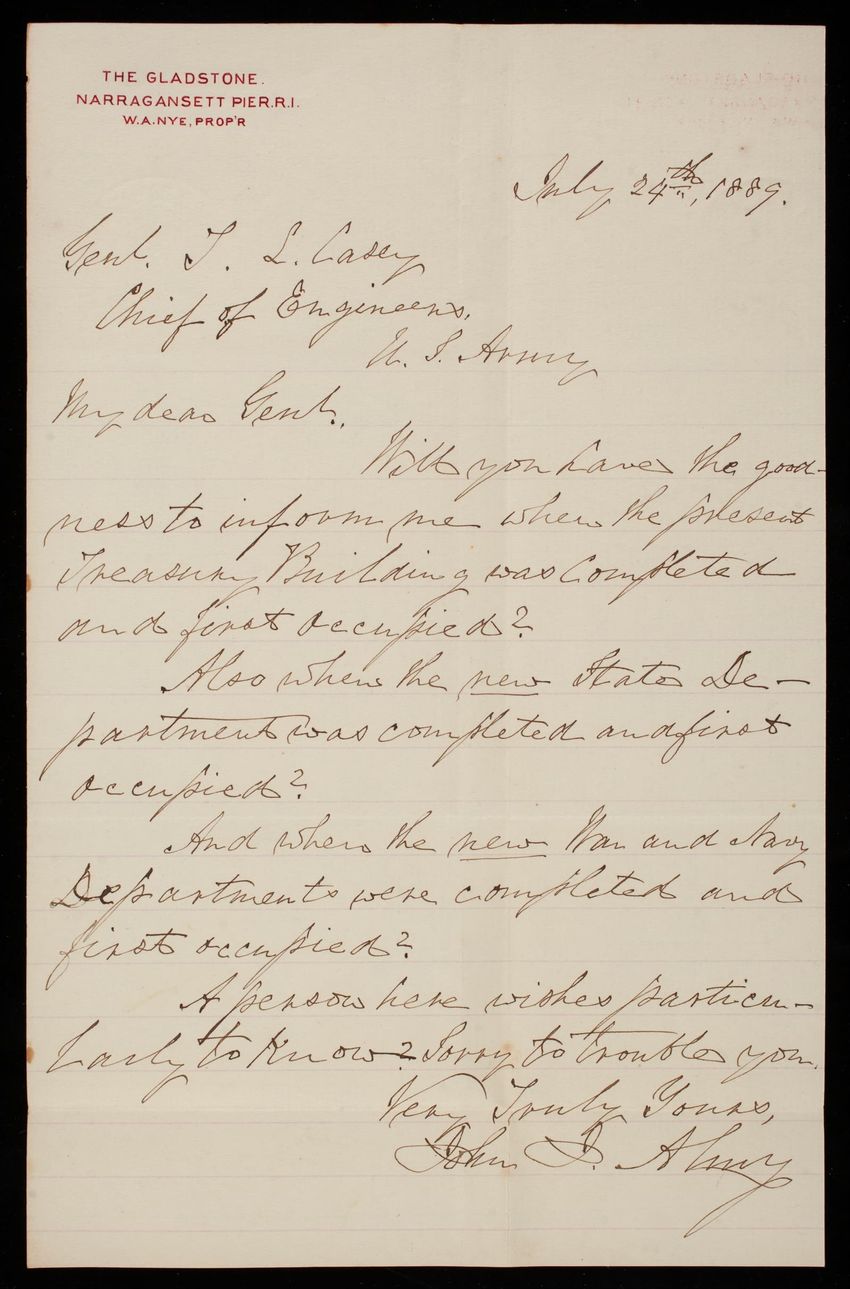 THE GLADSTONE.
NARRAGANSETT PIER.R.I.
W.A.NYE, PROP'R
July 24th, 1889.
Genl. T. L. Casey
Chief of Engineers,
U. S. Army
My dear Genl.,
Will you have the good-
ness to inform me when the present
Treasury Building was completed
and first occupied?
Also when the new State De-
partment was completed and first
occupied?
And when the new War and Navy
Departments were completed and
first occupied?
A person here wishes particu-
larly to know? Sorry to trouble you.
Very Truly Yours,
John J. Almy